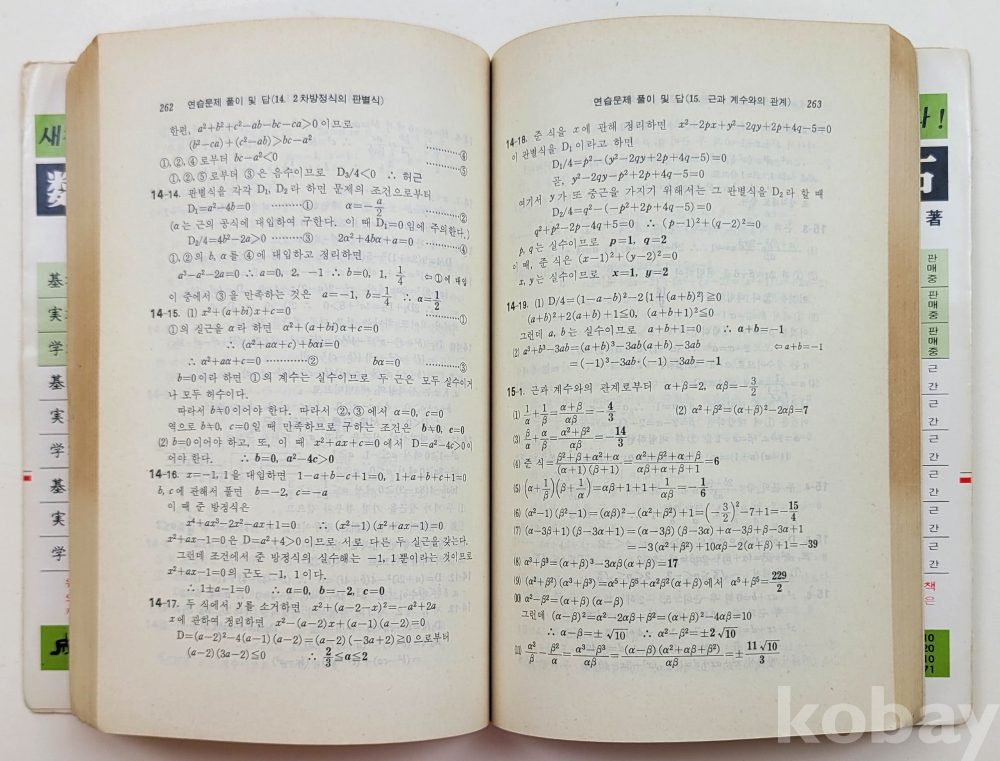 262 연습문제 풀이 및 답(14. 2차방정식의 판별식)
한편, a²+b²+c²-ab-bc-ca>0 이므로
(b²-ca)+(c²-ab)>bc-a²
①,②,④로부터 bc-a²<0 …………④
①,②,⑤로부터 ③은 음수이므로 D₃/4<0 ∴ 허근 …………⑤
14-14. 판별식을 각각 D₁, D₂라 하면 문제의 조건으로부터
D₁=a²-4b=0 …………① α=-a/2 …………②
(α는 근의 공식에 대입하여 구한다. 이 때 D₁=0임에 주의한다.)
D₂/4=4b²-2a>0 …………③ 2α²+4bα+a=0 …………④
①,②의 b, α를 ④에 대입하고 정리하면
a³-a²-2a=0 ∴ a=0, 2, -1 ∴ b=0, 1, 1/4 ⇦①에 대입
이 중에서 ③을 만족하는 것은 a=-1, b=1/4 ∴ α=1/2
14-15. (1) x²+(a+bi)x+c=0 …………①
①의 실근을 α라 하면 α²+(a+bi)α+c=0
∴ (α²+aα+c)+bαi=0
∴ α²+aα+c=0 …………② bα=0 …………③
b=0이라 하면 ①의 계수는 실수이므로 두 근은 모두 실수이거
나 모두 허수이다.
따라서 b≠0이어야 한다. 따라서 ②,③에서 α=0, c=0
역으로 b≠0, c=0일 때 만족하므로 구하는 조건은 b≠0, c=0
(2) b=0이어야 하고, 또, 이 때 x²+ax+c=0에서 D=a²-4c>0이
어야 한다. ∴ b=0, a²-4c>0
14-16. x=-1, 1을 대입하면 1-a+b-c+1=0, 1+a+b+c+1=0
b, c에 관해서 풀면 b=-2, c=-a
이 때 준 방정식은
x⁴+ax³-2x²-ax+1=0 ∴ (x²-1)(x²+ax-1)=0
x²+ax-1=0은 D=a²+4>0이므로 서로 다른 두 실근을 갖는다.
그런데 조건에서 준 방정식의 실수해는 -1, 1뿐이라는 것이므로
x²+ax-1=0의 근도 -1, 1이다.
∴ 1±a-1=0 ∴ a=0, b=-2, c=0
14-17. 두 식에서 y를 소거하면 x²+(a-2-x)²=-a²+2a
x에 관하여 정리하면 x²-(a-2)x+(a-1)(a-2)=0
D=(a-2)²-4(a-1)(a-2)=(a-2)(-3a+2)≧0으로부터
(a-2)(3a-2)≦0 ∴ 2/3≦a≦2
연습문제 풀이 및 답(15. 근과 계수와의 관계) 263
14-18. 준 식을 x에 관해 정리하면 x²-2px+y²-2qy+2p+4q-5=0
이 판별식을 D₁이라고 하면
D₁/4=p²-(y²-2qy+2p+4q-5)=0
곧, y²-2qy-p²+2p+4q-5=0
여기서 y가 또 중근을 가지기 위해서는 그 판별식을 D₂라 할 때
D₂/4=q²-(-p²+2p+4q-5)=0
q²+p²-2p-4q+5=0 ∴ (p-1)²+(q-2)²=0
p, q는 실수이므로 p=1, q=2
이 때, 준 식은 (x-1)²+(y-2)²=0
x, y는 실수이므로 x=1, y=2
14-19. (1) D/4=(1-a-b)²-2{1+(a+b)²}≧0
(a+b)²+2(a+b)+1≦0, (a+b+1)²≦0
그런데 a, b는 실수이므로 a+b+1=0 ∴ a+b=-1
(2) a³+b³-3ab=(a+b)³-3ab(a+b)-3ab ⇦a+b=-1
=(-1)³-3ab·(-1)-3ab=-1
15-1. 근과 계수와의 관계로부터 α+β=2, αβ=-3/2
(1) 1/α+1/β=(α+β)/αβ=-4/3 (2) α²+β²=(α+β)²-2αβ=7
(3) β/α+α/β=(α²+β²)/αβ=-14/3
(4) 준 식=(β²+β+α²+α)/((α+1)(β+1))=(α²+β²+α+β)/(αβ+α+β+1)=6
(5) (α+1/β)(β+1/α)=αβ+1+1+1/αβ=-1/6
(6) (α²-1)(β²-1)=(αβ)²-(α²+β²)+1=(-3/2)²-7+1=-15/4
(7) (α-3β+1)(β-3α+1)=(α-3β)(β-3α)+α-3β+β-3α+1
=-3(α²+β²)+10αβ-2(α+β)+1=-39
(8) α³+β³=(α+β)³-3αβ(α+β)=17
(9) (α²+β²)(α³+β³)=α⁵+β⁵+α²β²(α+β)에서 α⁵+β⁵=229/2
(10) α²-β²=(α+β)(α-β)
그런데 (α-β)²=α²-2αβ+β²=(α+β)²-4αβ=10
∴ α-β=±√10 ∴ α²-β²=±2√10
(11) α²/β-β²/α=(α³-β³)/αβ=(α-β)(α²+αβ+β²)/αβ=±11√10/3
새
基
実
学
基
実
学
基
実
学
라!
著
판매중
판매중
판매중
근간
근간
근간
책
은
10
20
40
71
kobay